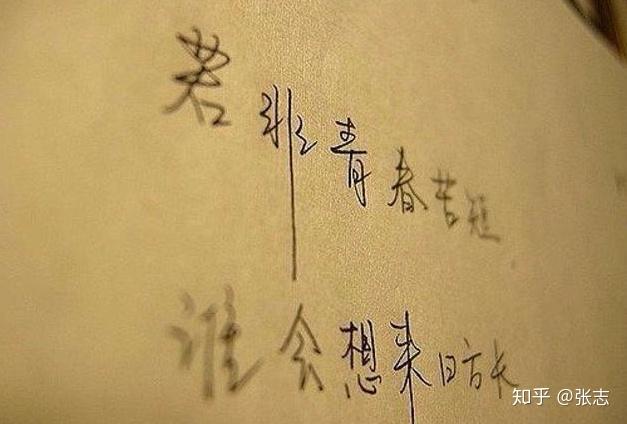 若非青春苦短
谁会想来日方长
知乎 @张志